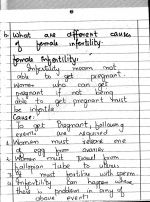 b. What are different causes
of female infertility.
Female Infertility:
Infertility means not
able to get pregnant.
Women who can get
pregnant if not being
able to get pregnant must
be infertile.
Cause:
To get Pregnant, following
events are required
1. Women must release one
of egg from ovaries
2. Women must travel from
Fallopian tube to uterus
3. must fertilise with sperm
4. Infertility can happen where
there is problem in any of
above events.